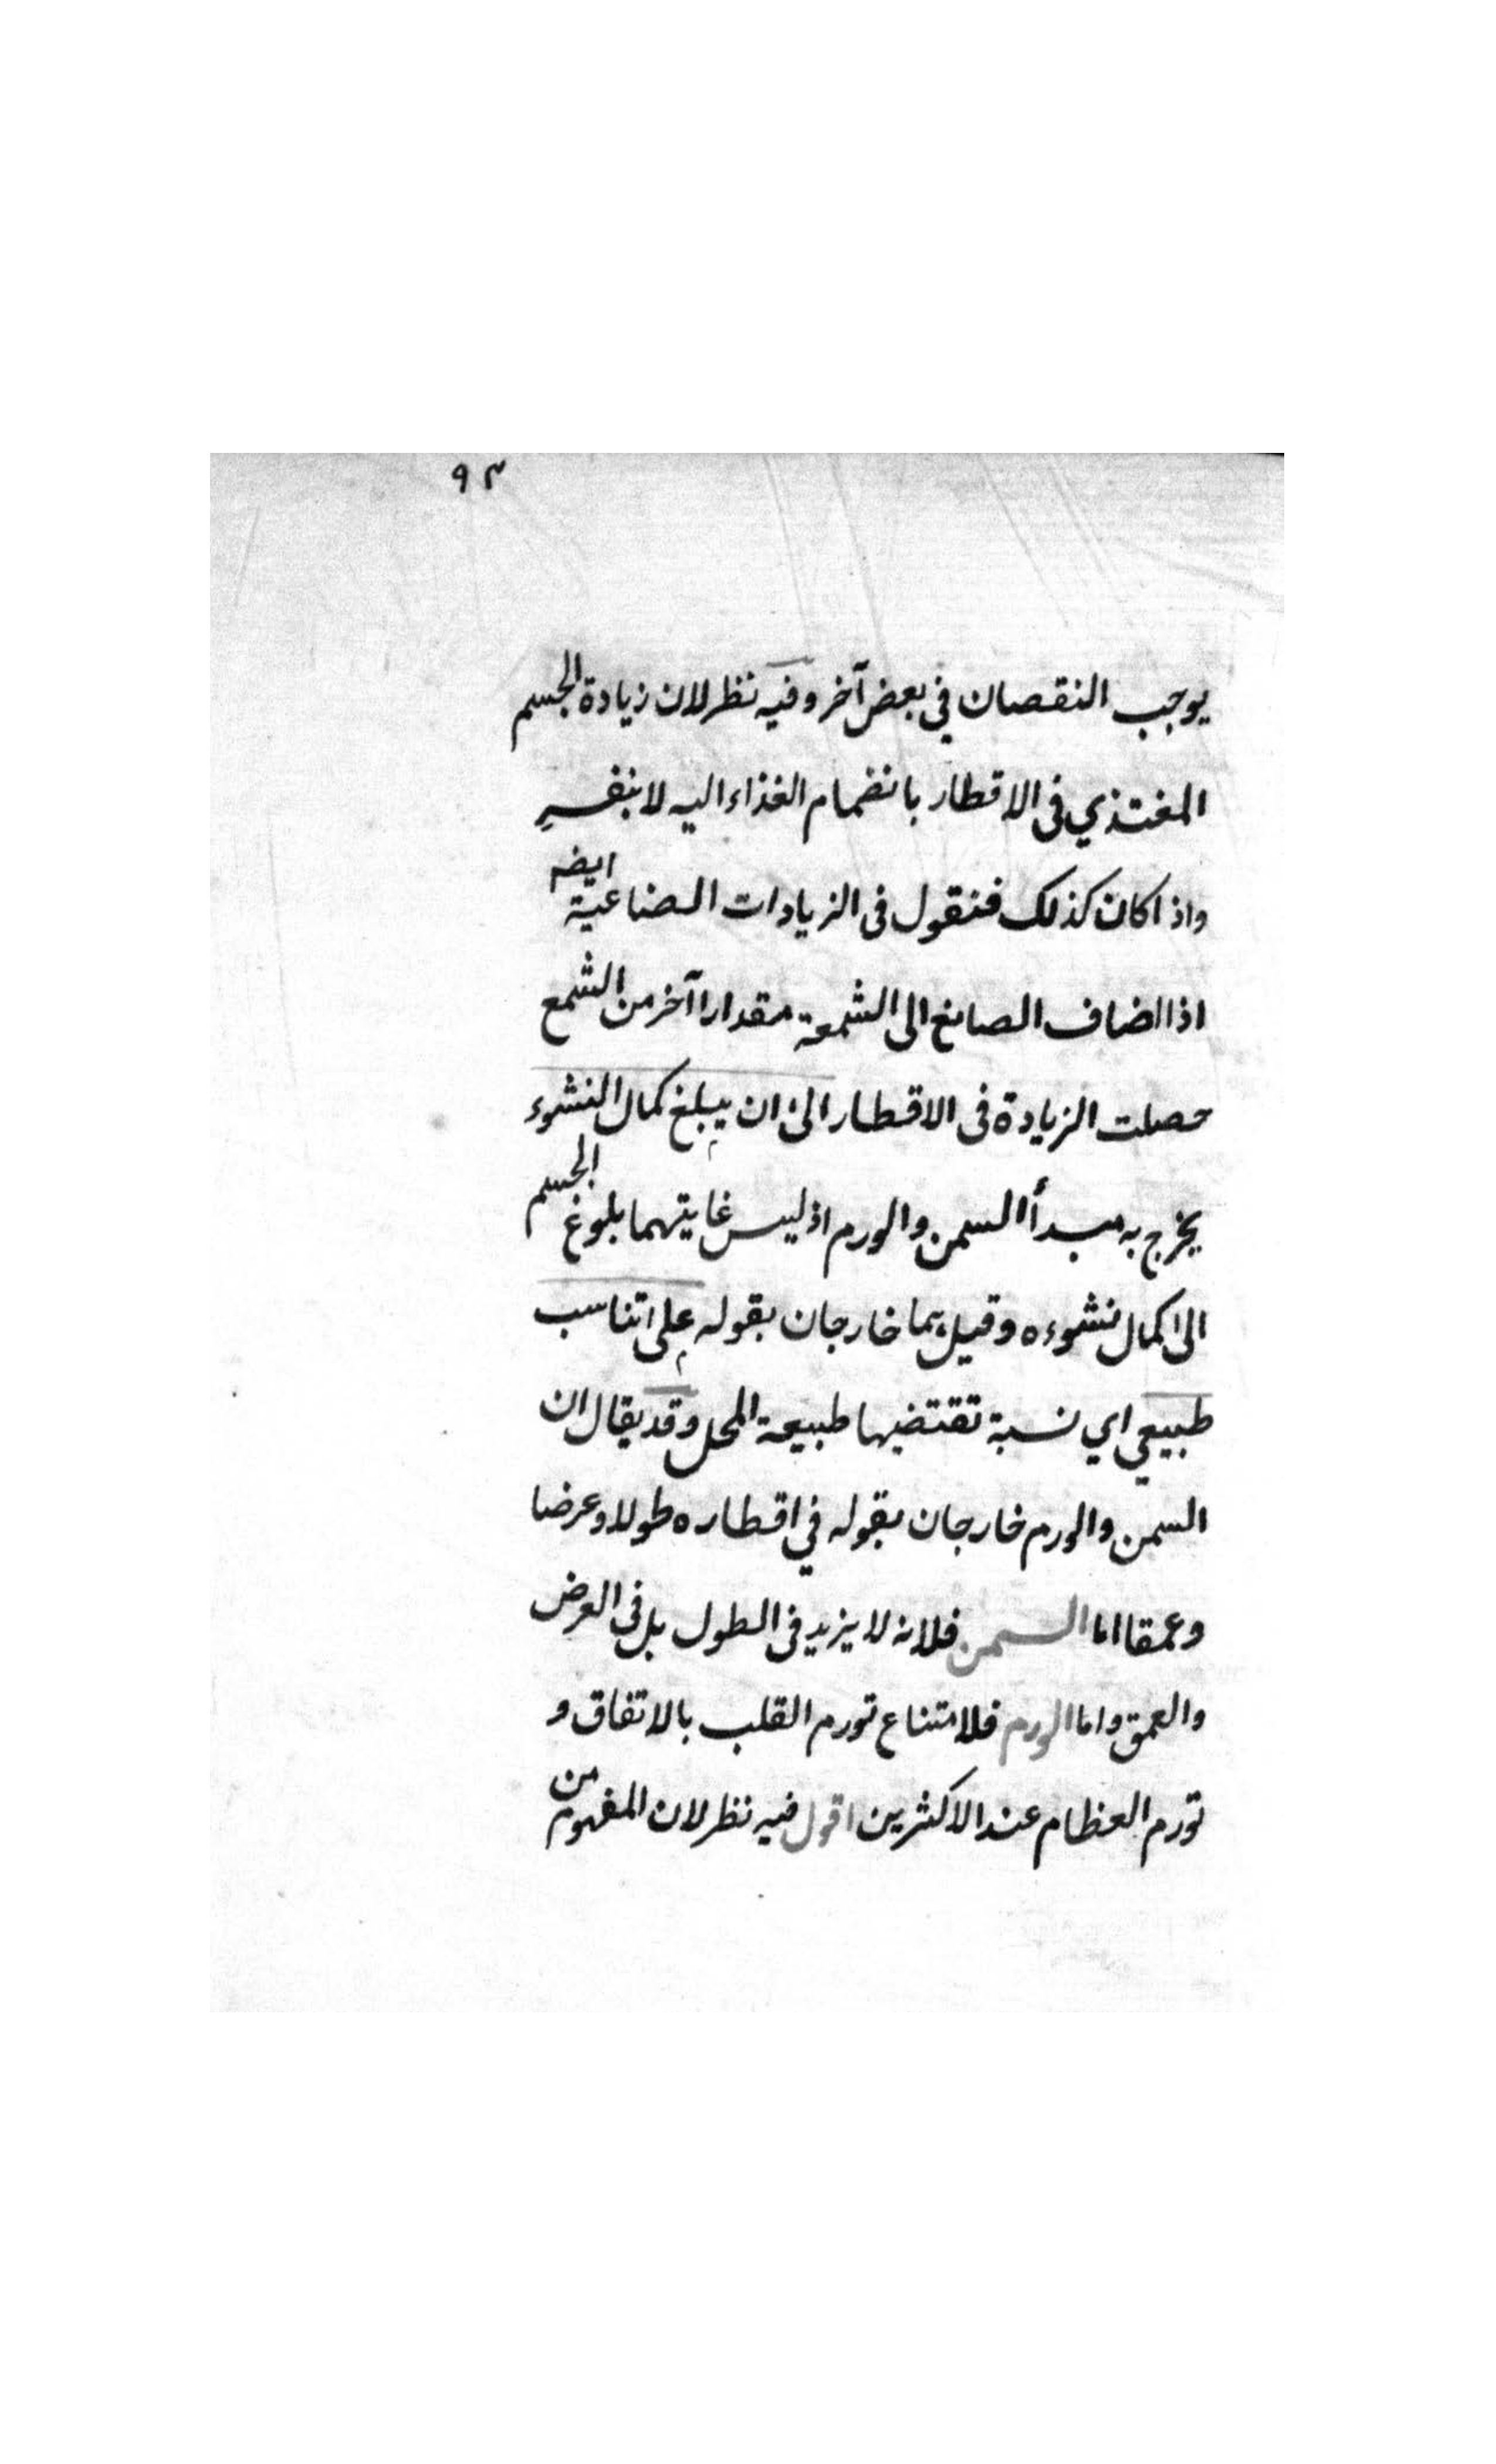 ٩٣
يوجب النقصان في بعض آخر وفيه نظر لان زيادة الجسم
المغتذي في الاقطار بانضمام الغذاء اليه لا بنفسه
واذا كان كذلك فنقول في الزيادات الصناعية ايضه
اذا اضاف الصانع الى الشمعة مقدارا آخر من الشمع
حصلت الزيادة في الاقطار الى ان يبلغ كمال النشوء
يخرج به مبدأ السمن والورم اذ ليس غايتهما بلوغ الجسم
الى كمال نشوءه وقيل خارجان بقوله على تناسب
طبيعي اي نسبة تقتضيها طبيعة المحل وقد يقال ان
السمن والورم خارجان بقوله في اقطاره طولا وعرضا
وعمقا اما السمن فلانه لا يزيد في الطول بل في العرض
والعمق واما الورم فلامتناع تورم القلب بالاتفاق و
تورم العظام عند الاكثرين اقول فيه نظر لان المفهوم من